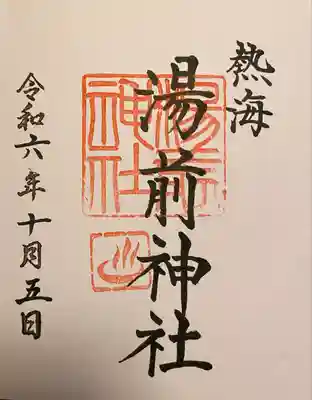 熱海
湯前神社
令和六年十月五日
湯前
神社